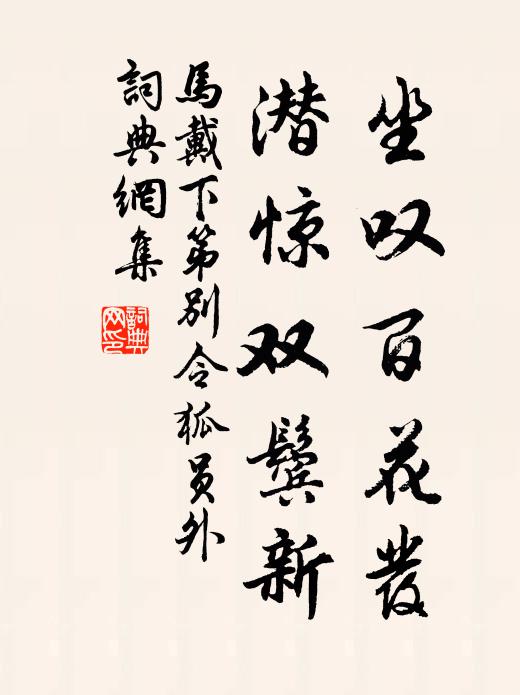 坐叹百花发
潜惊双鬓新
馬戴下第别令狐员外
詞典網集
詞典网印